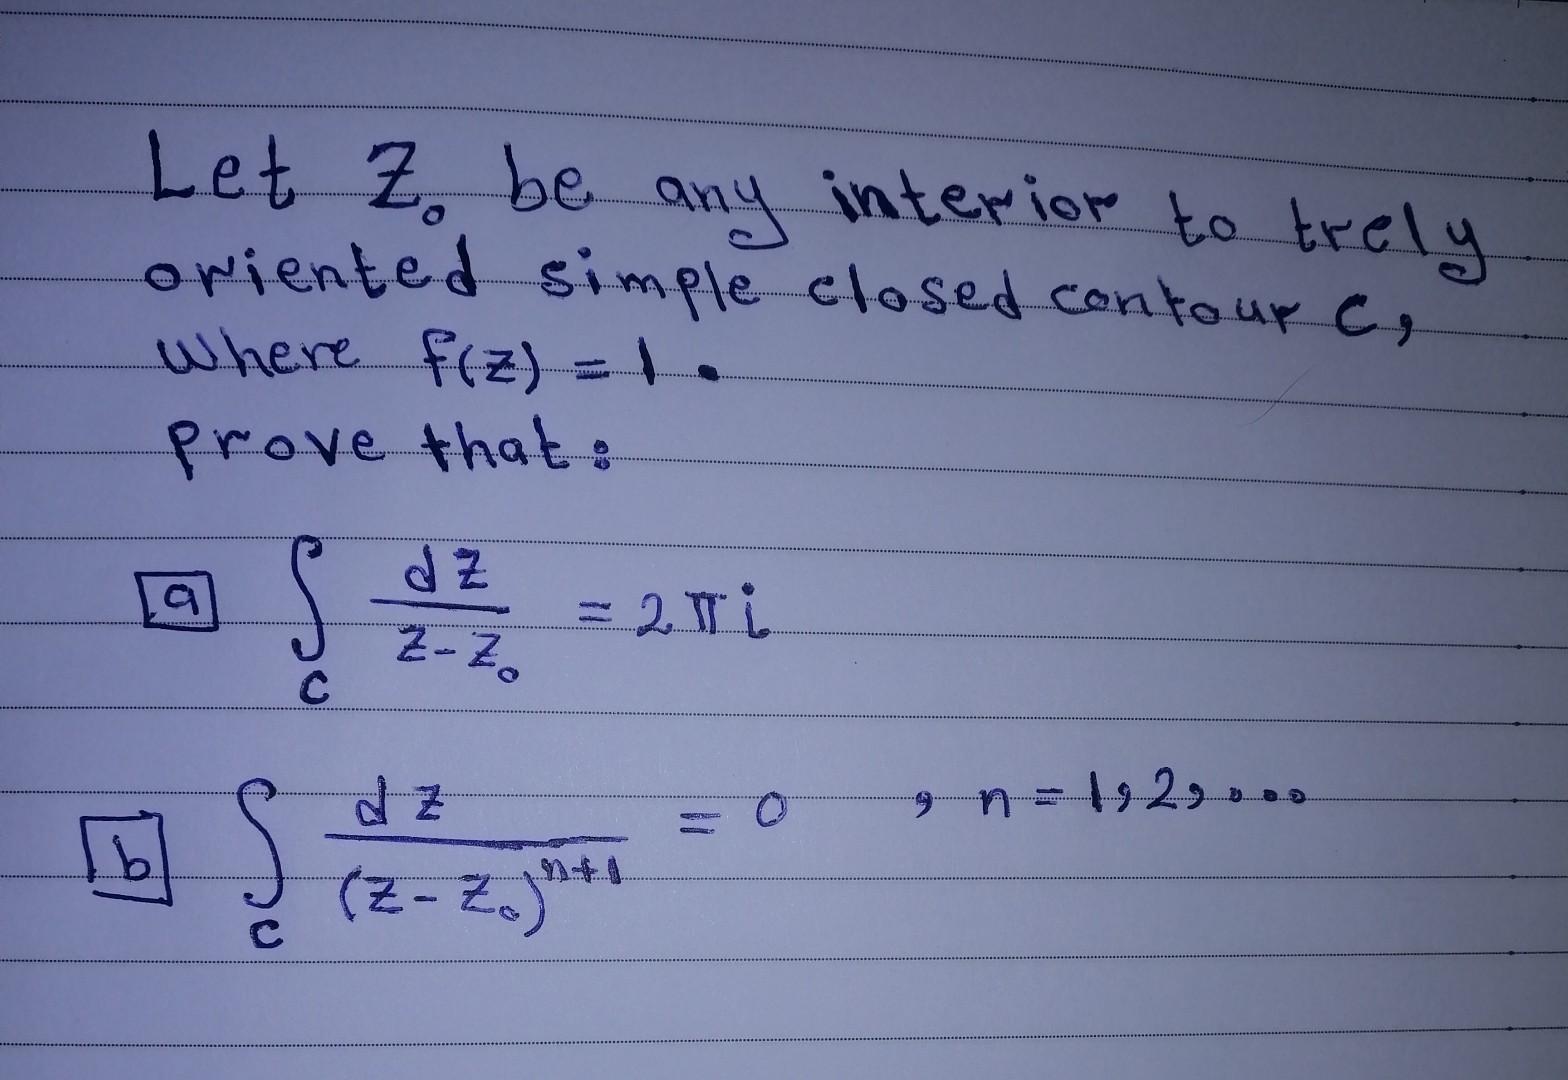 Let Z₀ be any interior to trely
oriented simple closed contour C,
where f(z) = 1.
prove that:
a ∫_C dz/(z-z₀) = 2πi
b ∫_C dz/(z-z₀)ⁿ⁺¹ = 0 , n=1,2,...